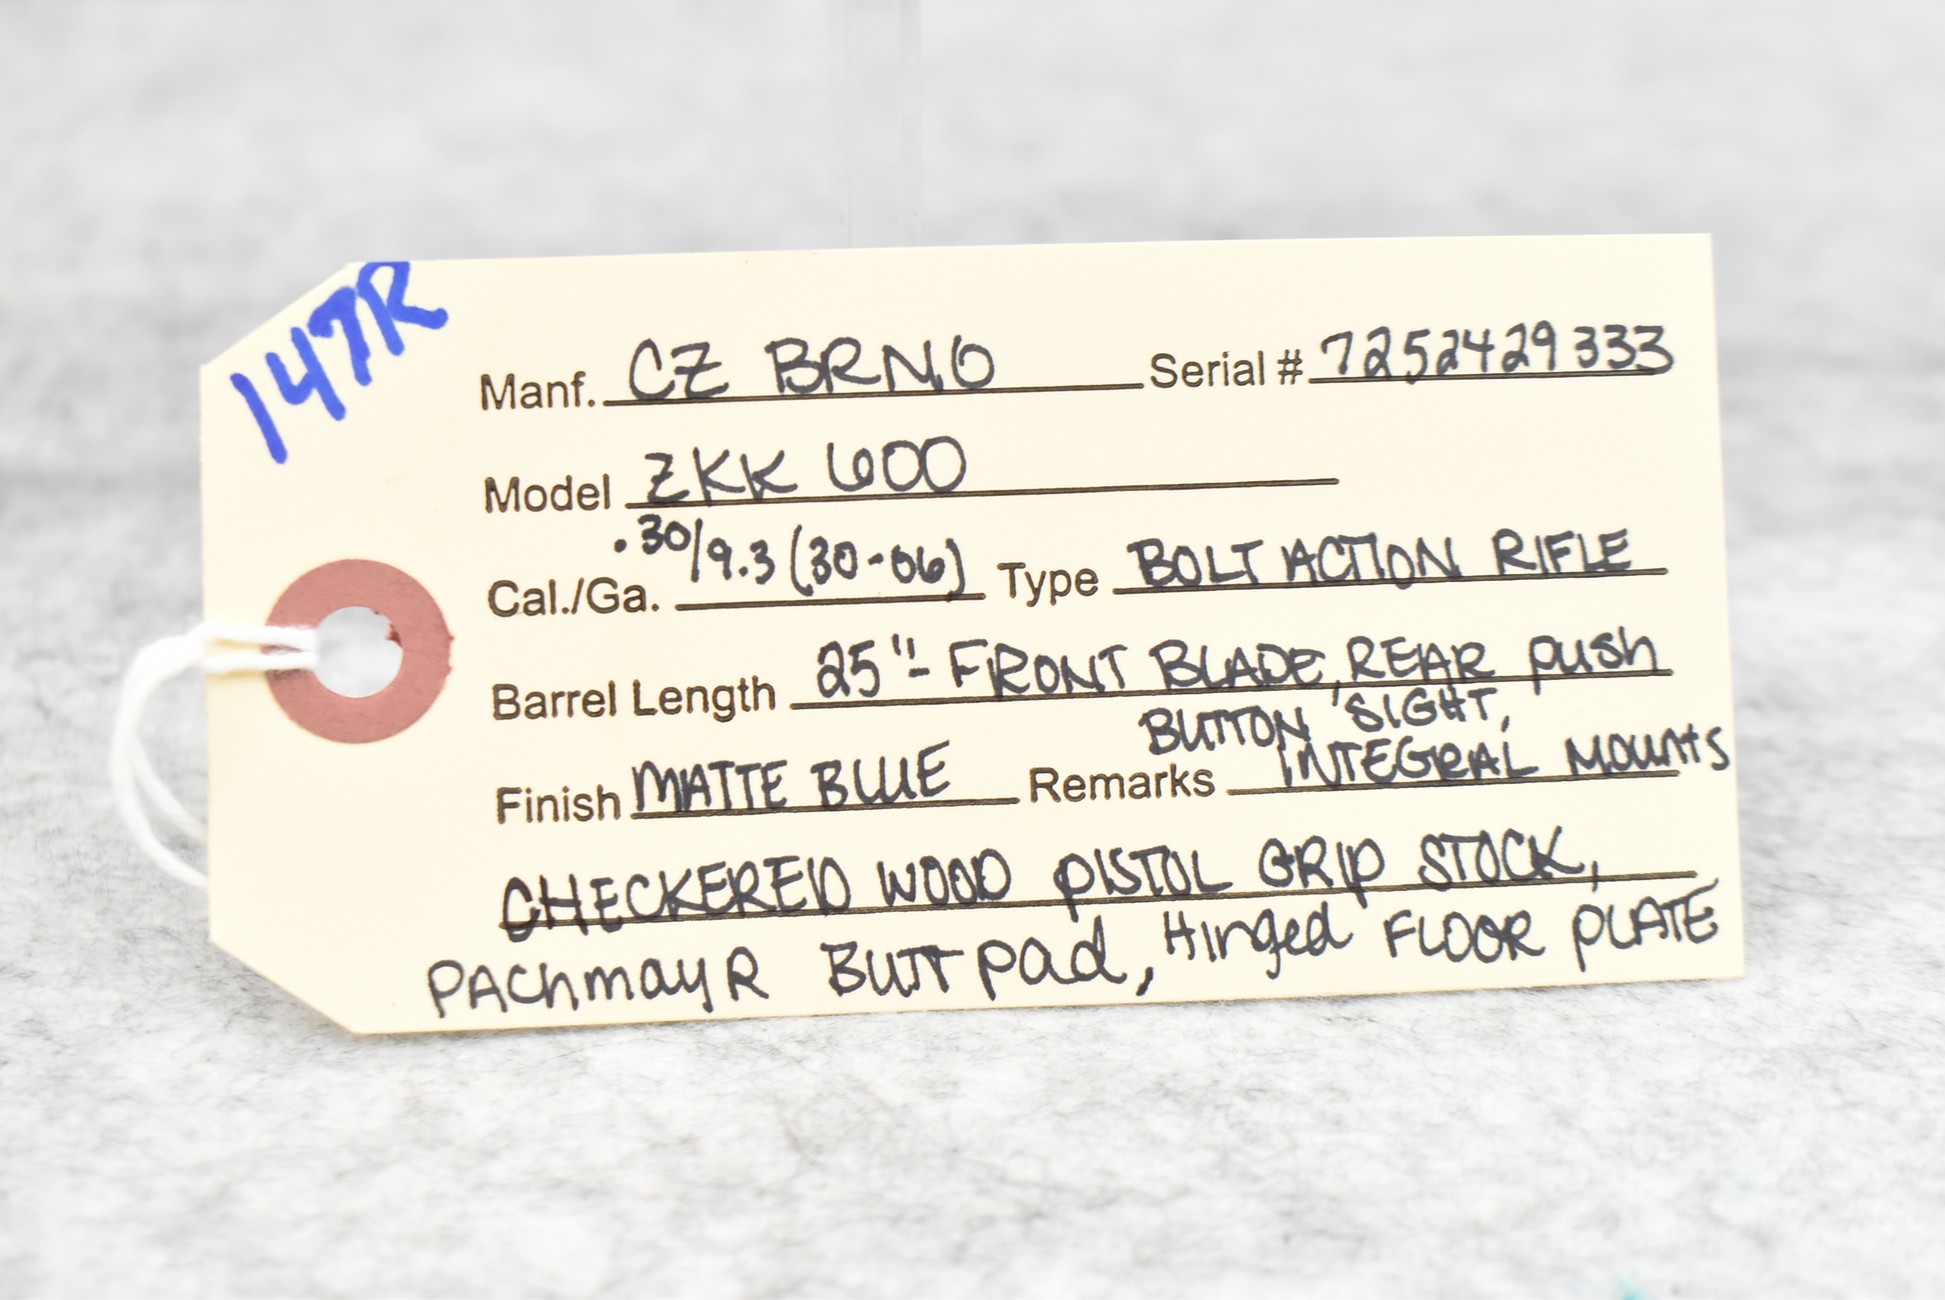 147R
Manf. CZ BRNO Serial # 7252429333
Model ZKK 600
Cal./Ga. .30/9.3 (30-06) Type BOLT ACTION RIFLE
Barrel Length 25"- FRONT BLADE, REAR push
BUTTON SIGHT,
Finish MATTE BLUE Remarks INTEGRAL MOUNTS
CHECKERED WOOD PISTOL GRIP STOCK,
PACHmayR BUTT pad, Hinged FLOOR PLATE